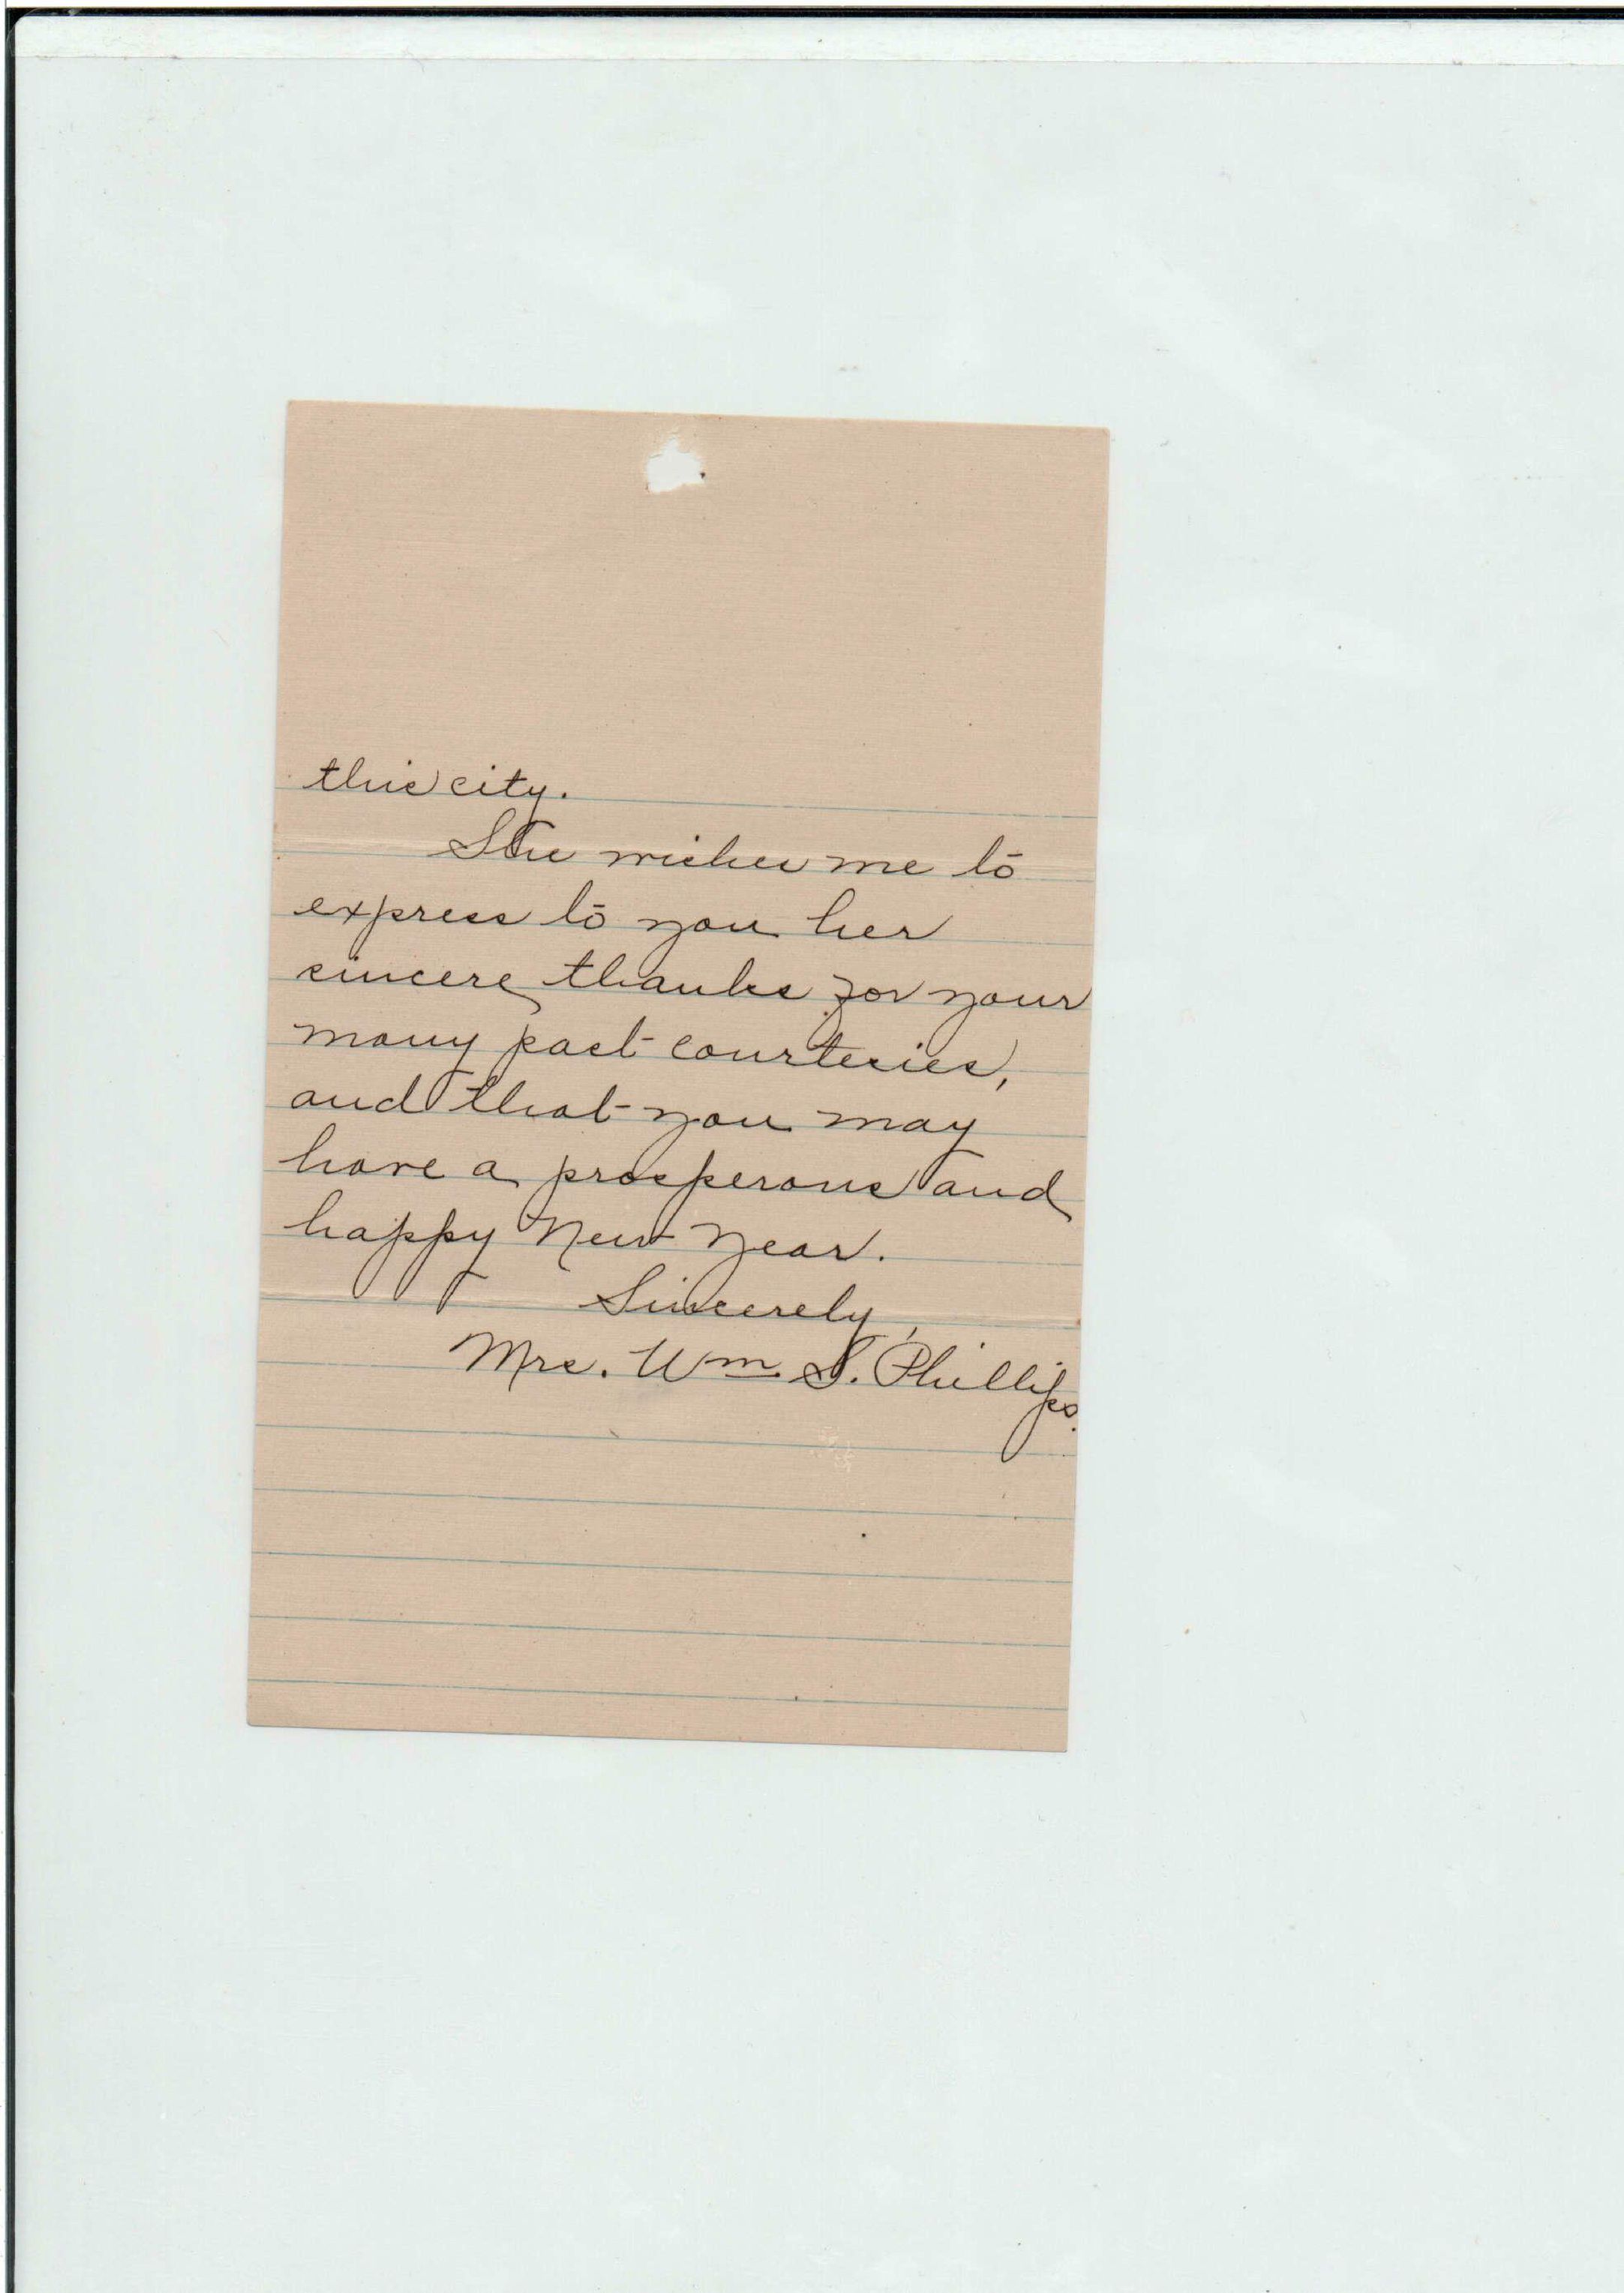 this city.
She wishes me to
express to you her
sincere thanks for your
many past courtesies,
and that you may
have a prosperous and
happy New Year.
Sincerely,
Mrs. Wm S. Phillips.